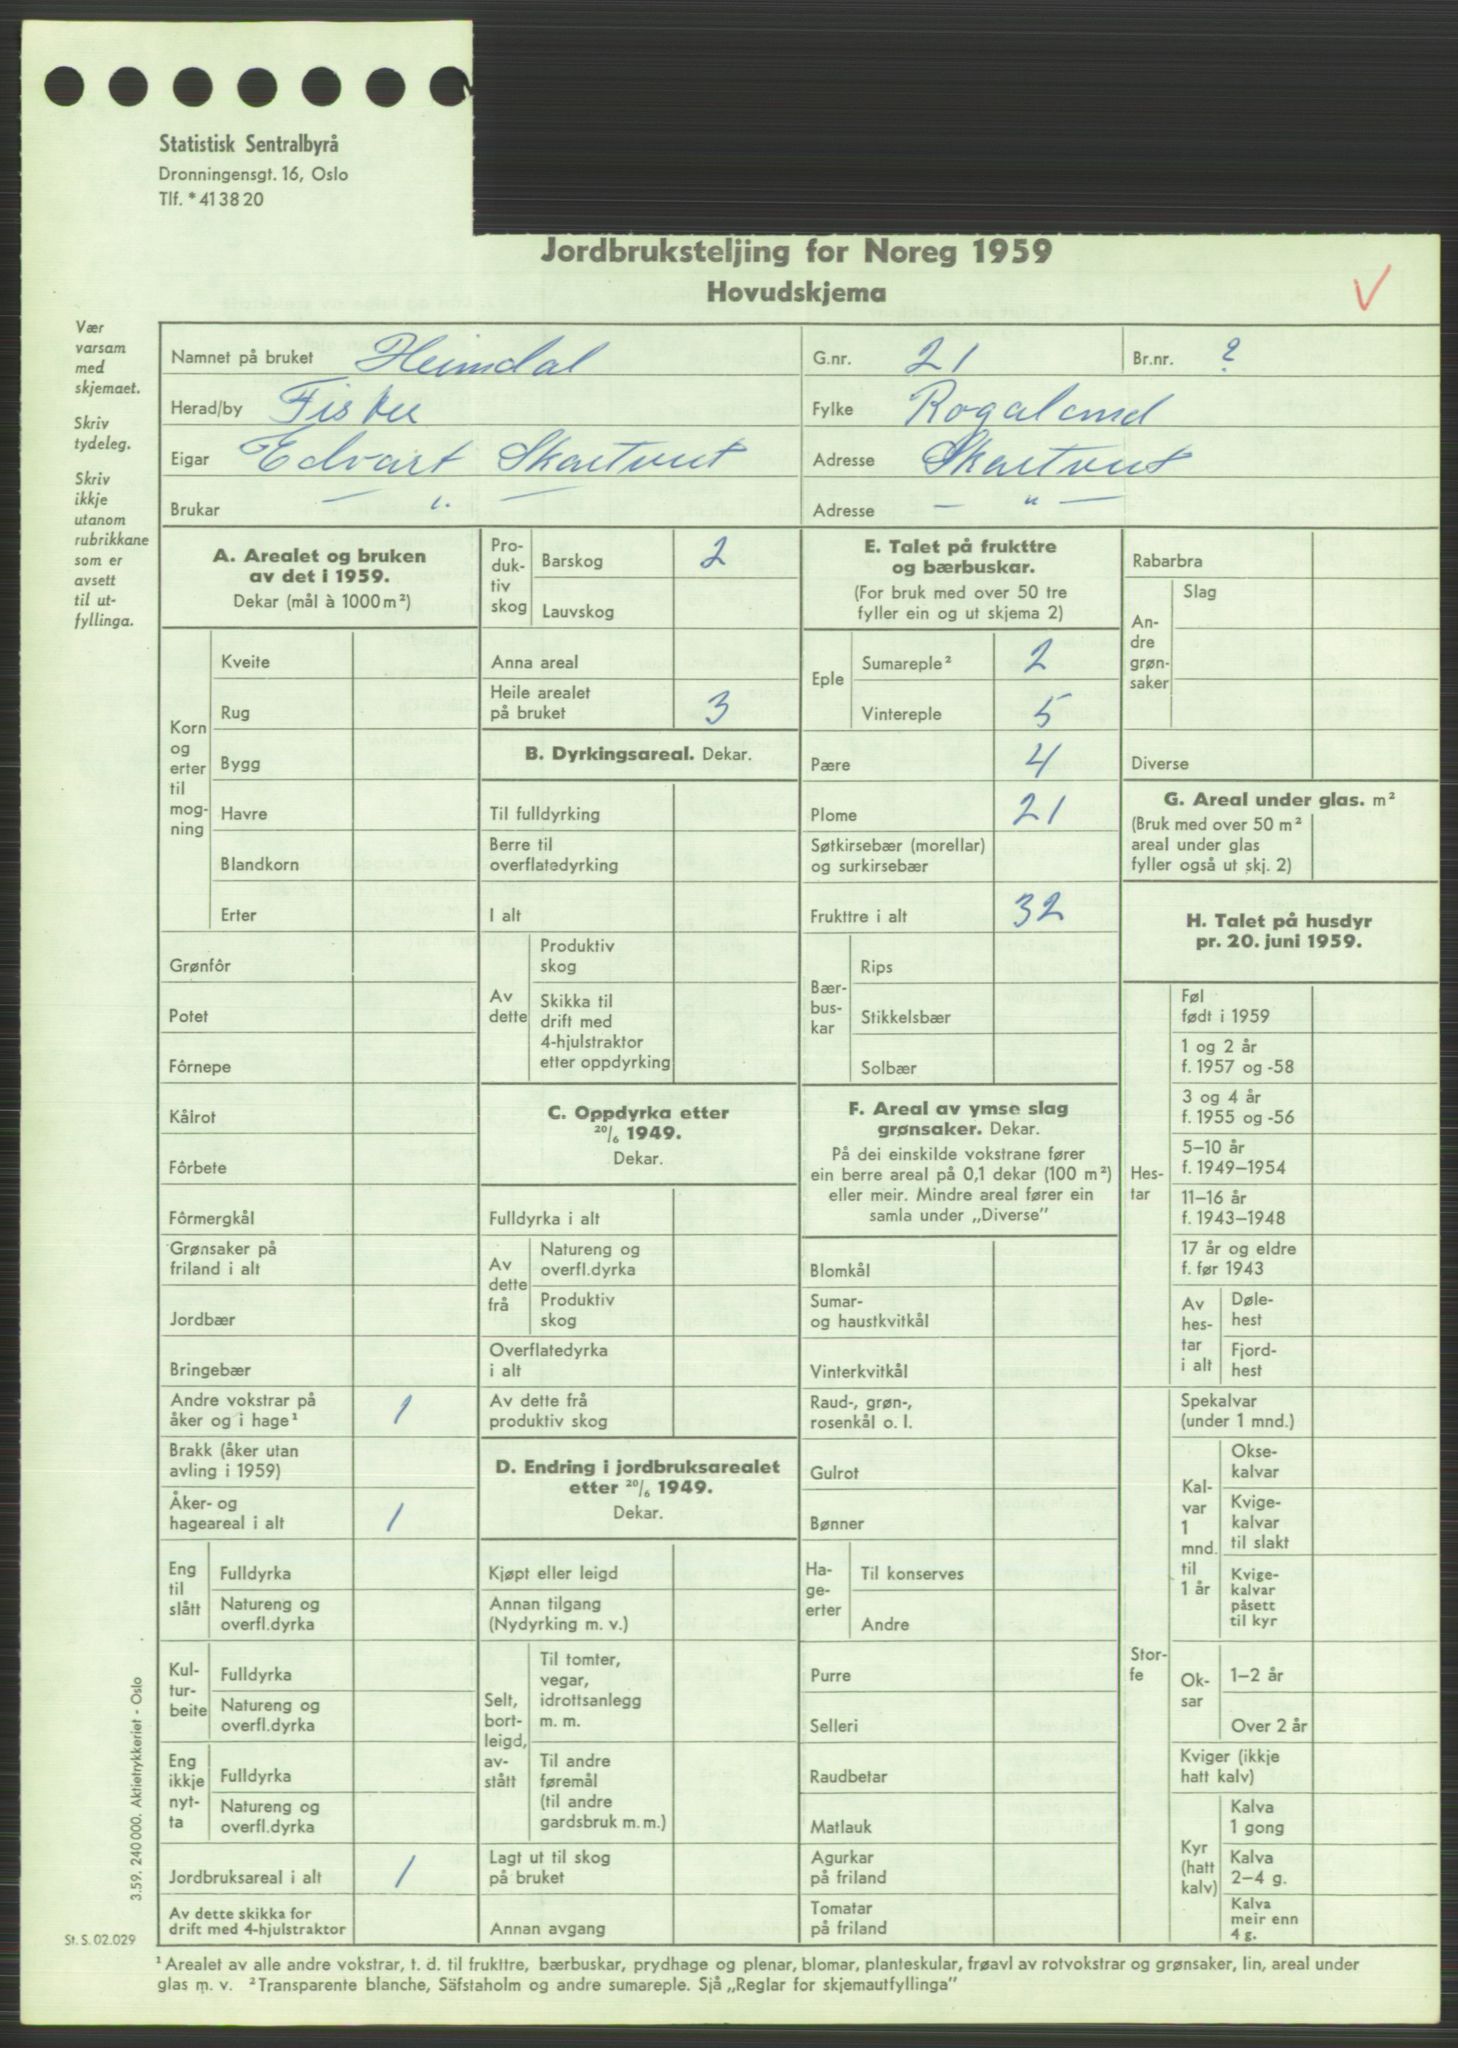 Statistisk Sentralbyrå
Dronningensgt. 16, Oslo
Tlf. *413820
Jordbruksteljing for Noreg 1959
Hovudskjema
Vær
varsam
med
skjemaet.
Skriv
tydeleg.
Skriv
ikkje
utanom
rubrikkane
som er
avsett
til ut-
fyllinga.
Namnet på bruket Heimdal G.nr. 21 Br.nr. ?
Herad/by Fister Fylke Rogaland
Eigar Edvart Skartveit Adresse Skartveit
Brukar — " — Adresse — " —
A. Arealet og bruken
av det i 1959.
Dekar (mål à 1000 m²)
Korn
og
erter
til
mog-
ning
Kveite
Rug
Bygg
Havre
Blandkorn
Erter
Grønfôr
Potet
Fôrnepe
Kålrot
Fôrbete
Fôrmergkål
Grønsaker på
friland i alt
Jordbær
Bringebær
Andre vokstrar på
åker og i hage¹ 1
Brakk (åker utan
avling i 1959)
Åker- og
hageareal i alt 1
Eng
til
slått
Fulldyrka
Natureng og
overfl.dyrka
Kul-
tur-
beite
Fulldyrka
Natureng og
overfl.dyrka
Eng
ikkje
nyt-
ta
Fulldyrka
Natureng og
overfl.dyrka
Jordbruksareal i alt 1
Av dette skikka for
drift med 4-hjulstraktor
Pro-
duk-
tiv
skog
Barskog 2
Lauvskog
Anna areal
Heile arealet
på bruket 3
B. Dyrkingsareal. Dekar.
Til fulldyrking
Berre til
overflatedyrking
I alt
Av
dette
Produktiv
skog
Skikka til
drift med
4-hjulstraktor
etter oppdyrking
C. Oppdyrka etter
20/6 1949.
Dekar.
Fulldyrka i alt
Av
dette
frå
Natureng og
overfl.dyrka
Produktiv
skog
Overflatedyrka
i alt
Av dette frå
produktiv skog
D. Endring i jordbruksarealet
etter 20/6 1949.
Dekar.
Kjøpt eller leigd
Annan tilgang
(Nydyrking m. v.)
Selt,
bort-
leigd,
av-
stått
Til tomter,
vegar,
idrottsanlegg
m. m.
Til andre
føremål
(til andre
gardsbruk m. m.)
Lagt ut til skog
på bruket
Annan avgang
E. Talet på frukttre
og bærbuskar.
(For bruk med over 50 tre
fyller ein og ut skjema 2)
Eple
Sumareple² 2
Vintereple 5
Pære 4
Plome 21
Søtkirsebær (morellar)
og surkirsebær
Frukttre i alt 32
Bær-
bus-
kar
Rips
Stikkelsbær
Solbær
F. Areal av ymse slag
grønsaker. Dekar.
På dei einskilde vokstrane fører
ein berre areal på 0,1 dekar (100 m²)
eller meir. Mindre areal fører ein
samla under „Diverse"
Blomkål
Sumar-
og haustkvitkål
Vinterkvitkål
Raud-, grøn-,
rosenkål o. l.
Gulrot
Bønner
Ha-
ge-
erter
Til konserves
Andre
Purre
Selleri
Raudbetar
Matlauk
Agurkar
på friland
Tomatar
på friland
Rabarbra
An-
dre
grøn-
saker
Slag
Diverse
G. Areal under glas. m²
(Bruk med over 50 m²
areal under glas
fyller også ut skj. 2)
H. Talet på husdyr
pr. 20. juni 1959.
Hes-
tar
Føl
født i 1959
1 og 2 år
f. 1957 og -58
3 og 4 år
f. 1955 og -56
5–10 år
f. 1949–1954
11–16 år
f. 1943–1948
17 år og eldre
f. før 1943
Av
hes-
tar
i alt
Døle-
hest
Fjord-
hest
Stor-
fe
Spekalvar
(under 1 mnd.)
Kal-
var
1
mnd.
til
1 år
Okse-
kalvar
Kvige-
kalvar
til slakt
Kvige-
kalvar
påsett
til kyr
Ok-
sar
1–2 år
Over 2 år
Kviger (ikkje
hatt kalv)
Kyr
(hatt
kalv)
Kalva
1 gong
Kalva
2–4 g.
Kalva
meir enn
4 g.
3.59. 240 000. Aktietrykkeriet - Oslo
St. S. 02.029
¹ Arealet av alle andre vokstrar, t. d. til frukttre, bærbuskar, prydhage og plenar, blomar, planteskular, frøavl av rotvokstrar og grønsaker, lin, areal under
glas m. v. ² Transparente blanche, Säfstaholm og andre sumareple. Sjå „Reglar for skjemautfyllinga"